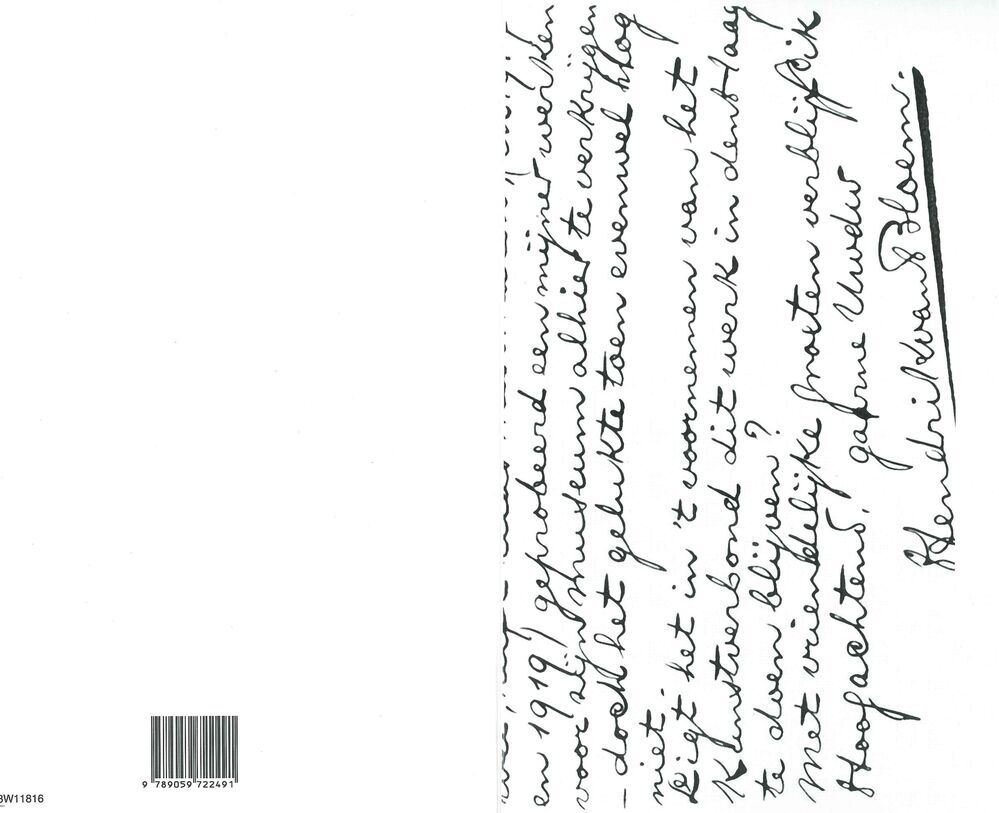 en 1919) geprobeerd een mijner werken
voor zijn museum alhier te verkrijgen
- doch het gelukte toen evenwel
niet.
Ligt het in 't voornemen van het
Kunstverbond dit werk in den Haag
te doen blijven?
Met vriendelijke groeten verblijf ik
Hoogachtend, gaarne Uwdw
Hendrik van Bloem.
9 789059 722491
BW11816